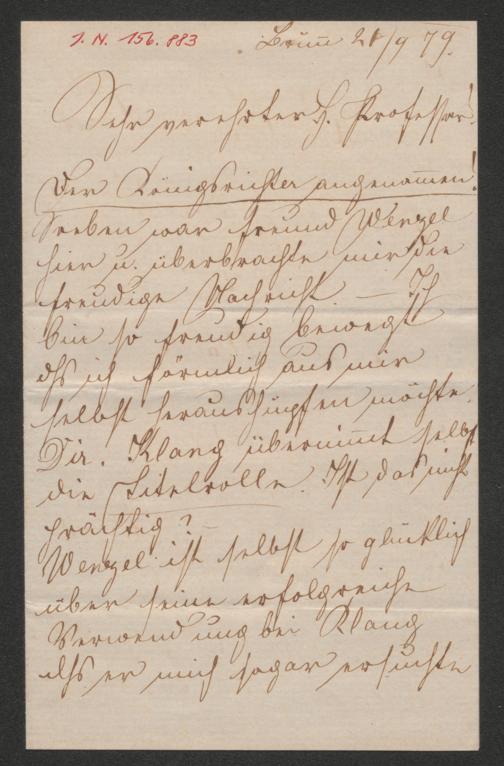 J. N. 156.883
Brünn 21/9 79.
Sehr verehrter H. Professor!
Der Königsrichter angenom̅en!
Soeben war Freund Wenzel
hier u. überbrachte mir die
freudige Nachricht. — Ich
bin so freudig bewegt
dſs ich förmlich aus mir
selbst heraushüpfen möchte.
Dir. Klang übernim̅t selbst
die Titelrolle. Ist das nicht
prächtig? —
Wenzel ist selbst so glücklich
über seine erfolgreiche
Verwendung bei Klang
dſs er mich sogar ersuchte